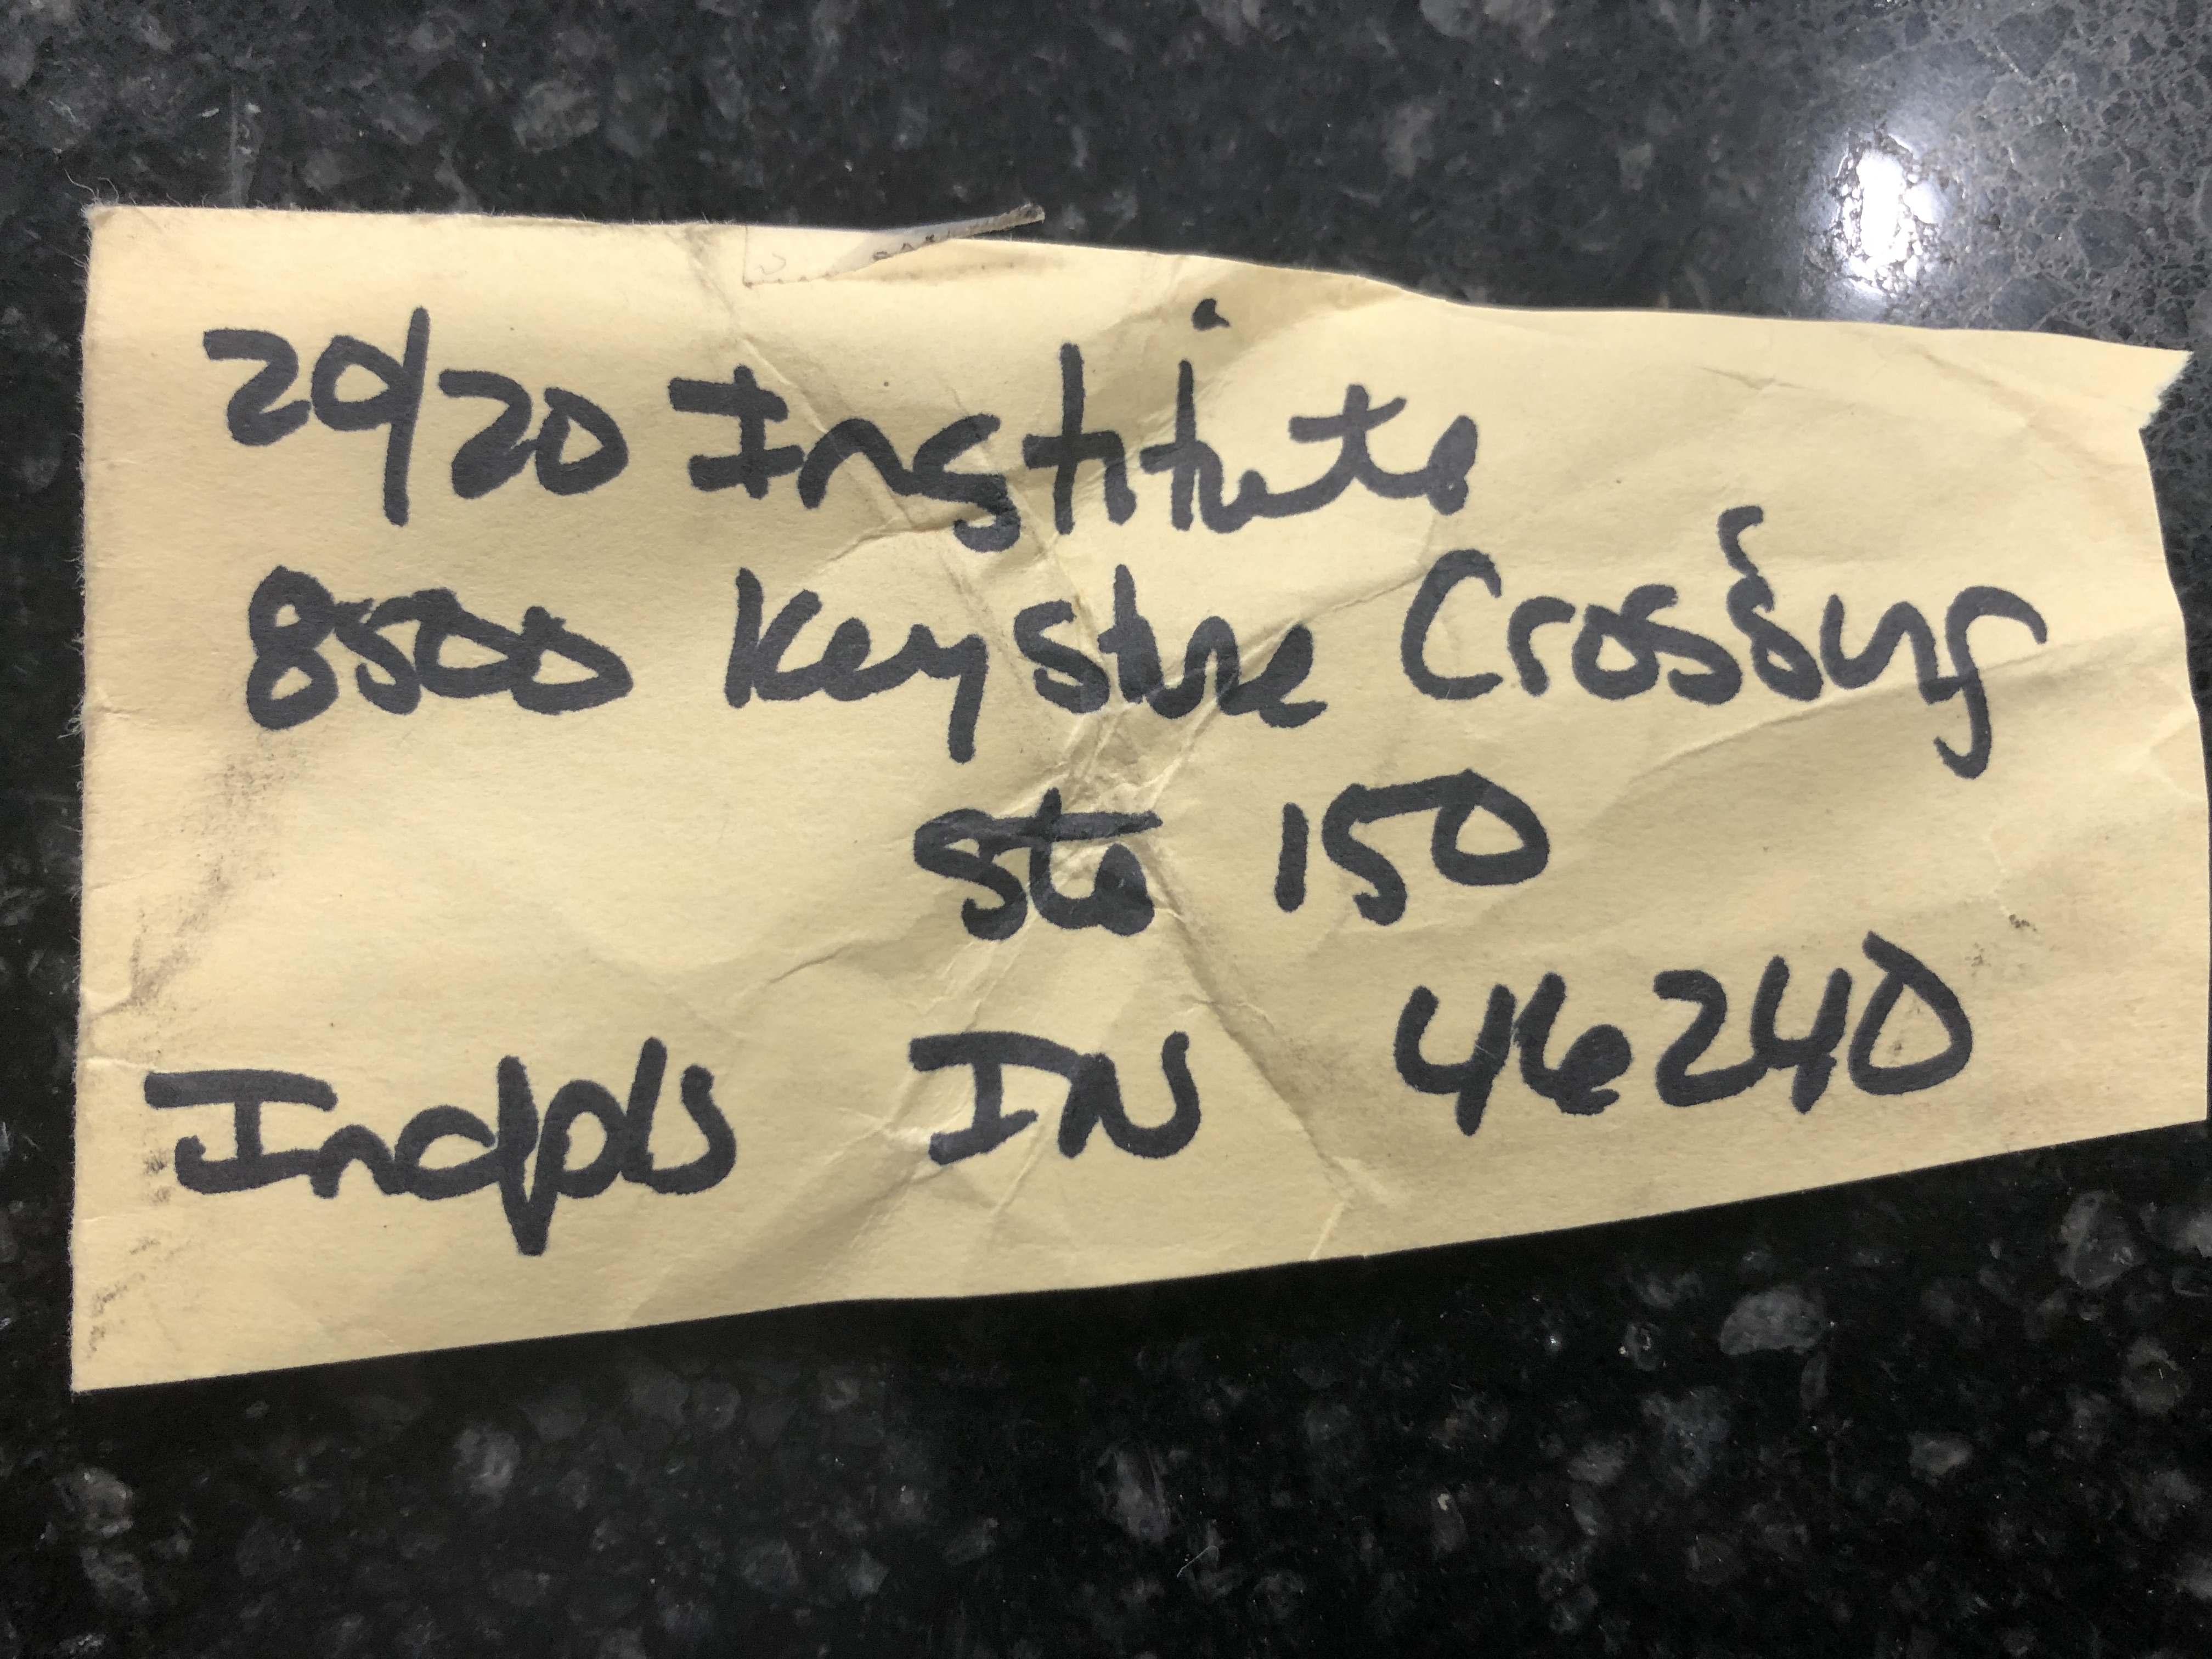 20/20 Institute
8500 Keystone Crossing
Ste 150
Indpls IN 46240